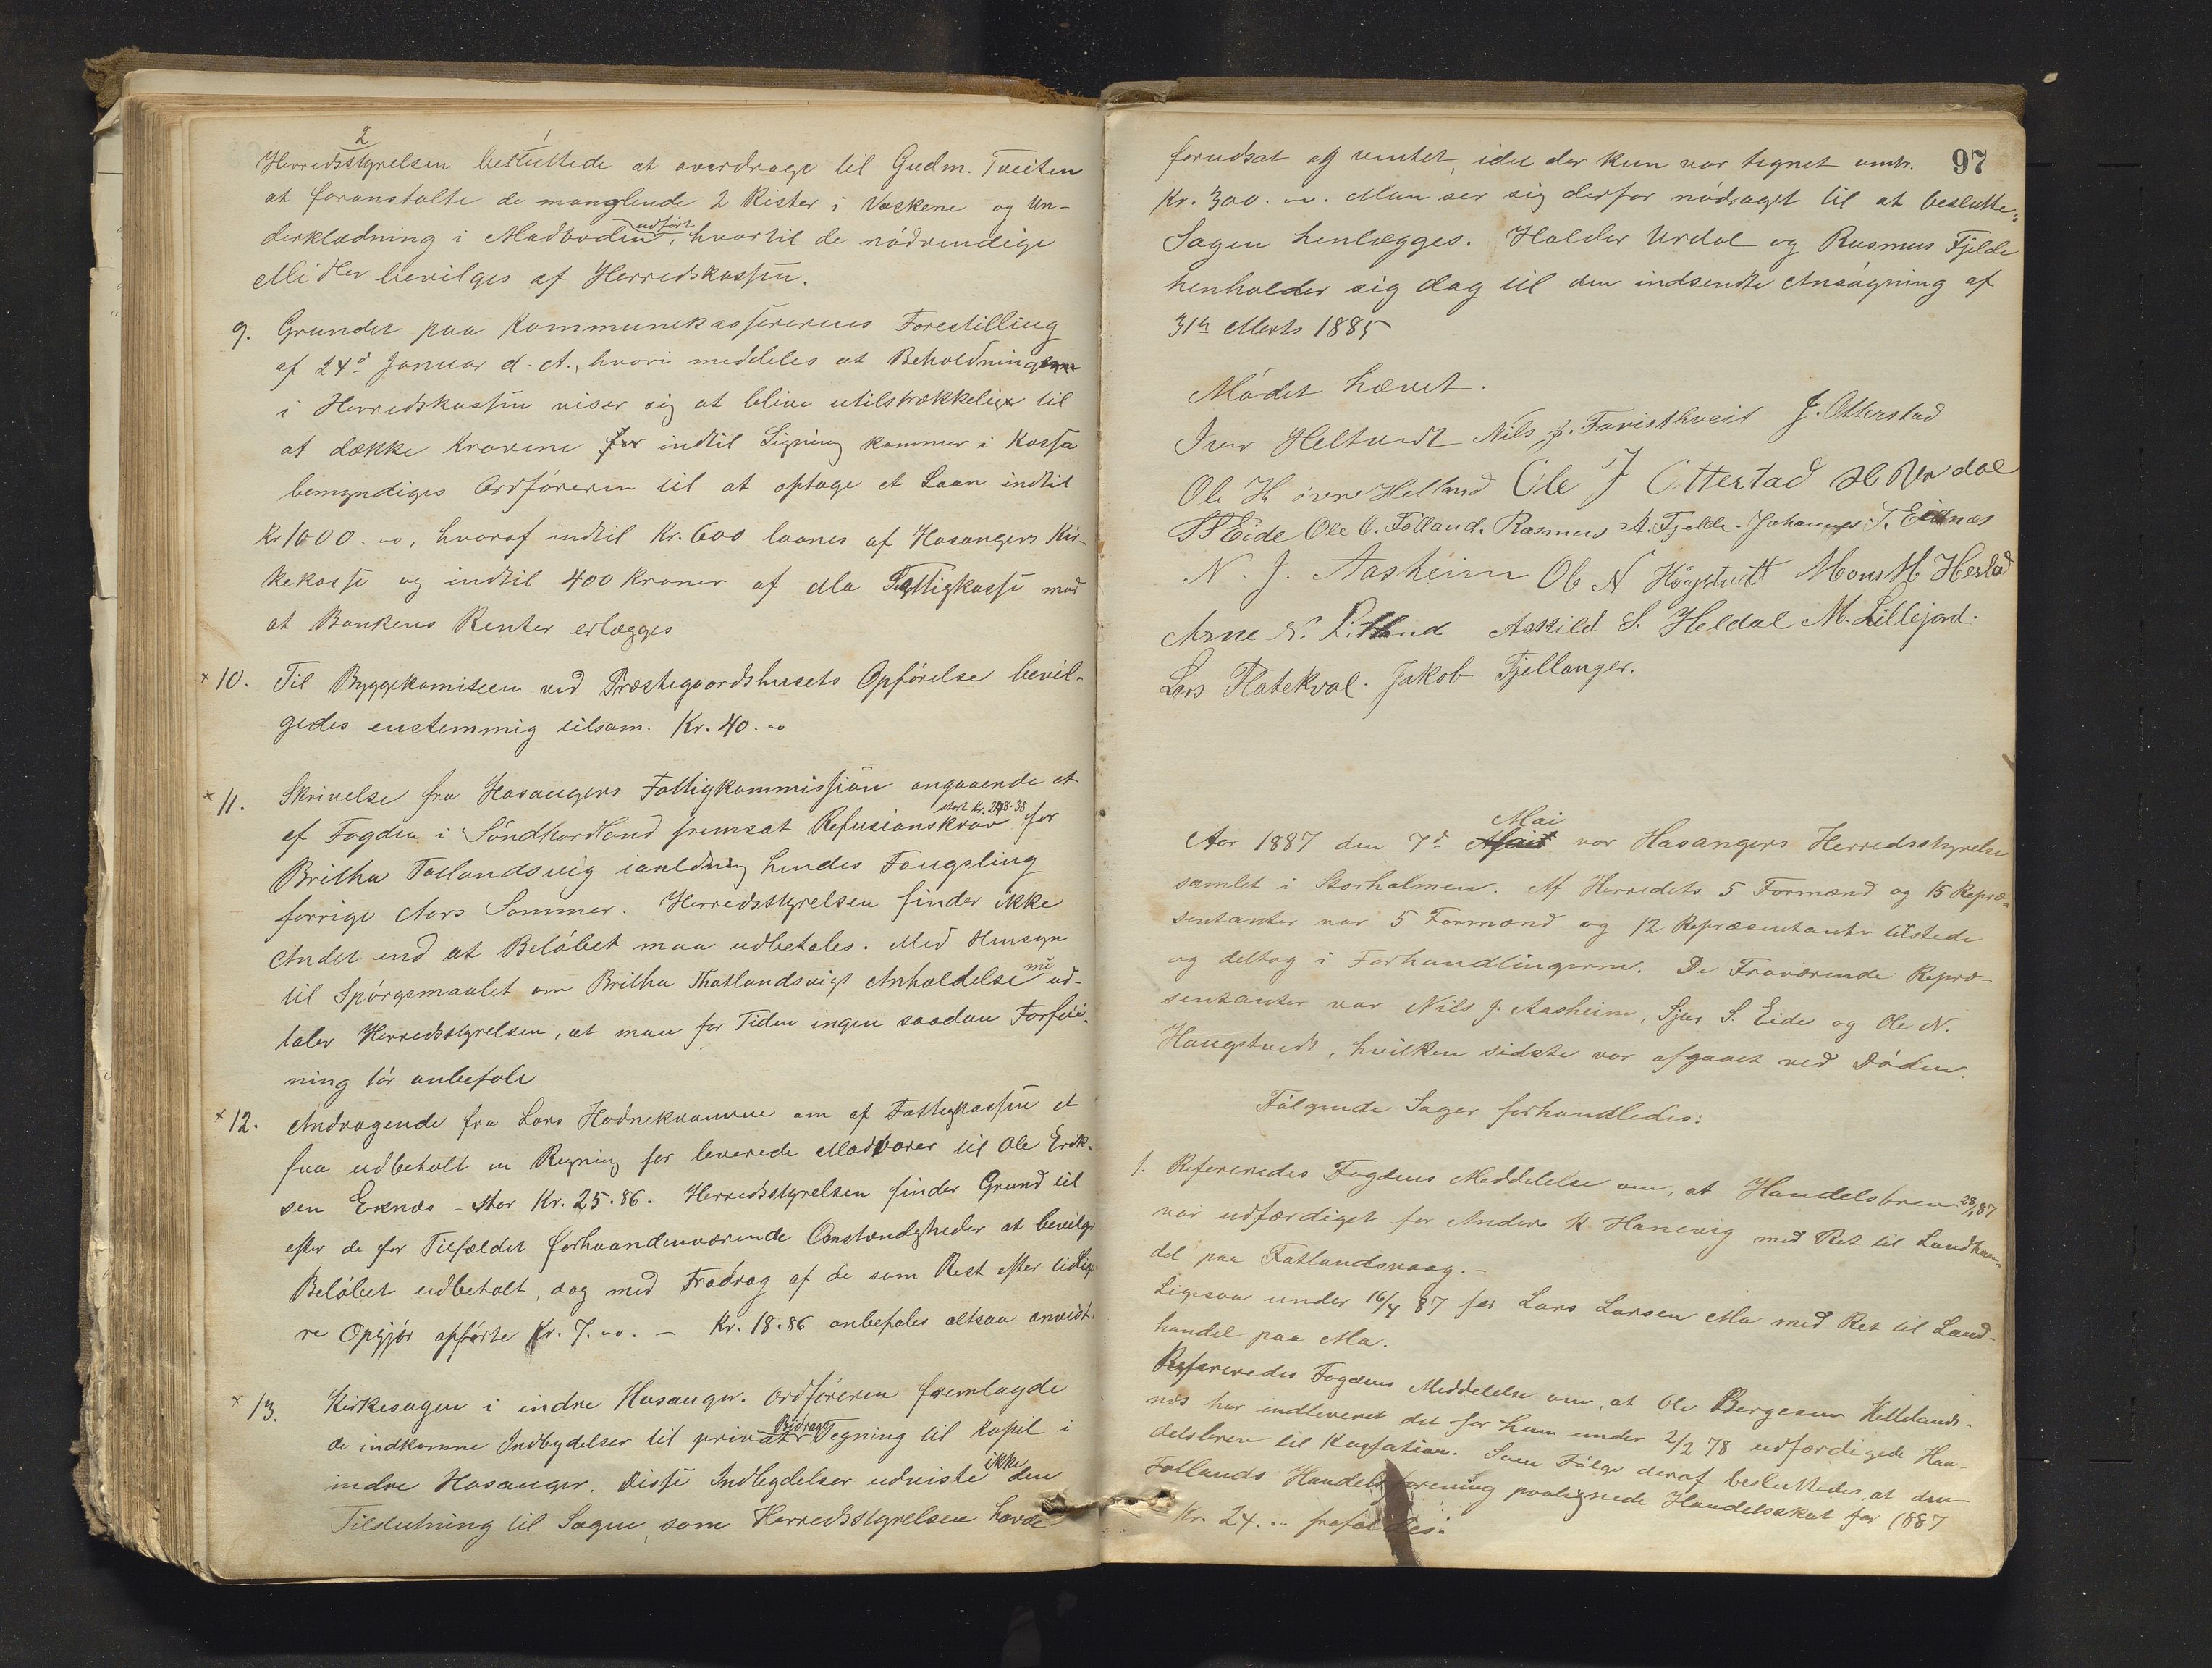 2 1
Herredsstyrelsen besluttede at overdrage til Gudm. Tveiten
at foranstalte de manglende 2 Rister i Vaskene og Un-
derklædning i Madboden udført, hvortil de nødvendige
Midler bevilges af Herredskassen.
9. Grundet paa Kommunekassererens Forestilling
af 24d Januar d. A., hvori meddeles at Beholdningen
i Herredskassen viser sig at blive utilstrækkelig til
at dække Kravene for indtil Ligning kommer i Kassa
bemyndiges Ordføreren til at optage et Laan indtil
Kr 1000. „, hvoraf indtil Kr. 600 laanes af Hosangers Kir-
kekasse og indtil 400 Kroner af Mo Fattigkasse mod
at Bankens Renter erlægges
× 10. Til Byggekomiteen ved Præstegaardshusets Opførelse bevil-
gedes enstemmig tilsam. Kr. 40. „
× 11. Skrivelse fra Hosangers Fattigkommission angaaende et
af Fogden i Søndhordland fremsat Refusionskrav stort Kr. 248.38 for
Britha Tatlandsvig ianledning hendes Fængsling
forrige Aars Sommer. Herredsstyrelsen finder ikke
Andet end at Beløbet maa udbetales. Med Hensyn
til Spørgsmaalet om Britha Thatlandsvigs Anholdelse nu ud-
taler Herredsstyrelsen, at man for Tiden ingen saadan Forføi-
ning tør anbefale
× 12. Andragende fra Lars Hodnekvamme om af Fattigkassen at
faa udbetalt en Regning for leverede Madvarer til Ole Erik-
sen Eknæs – stor Kr. 25.86. Herredsstyrelsen finder Grund til
efter de for Tilfældet forhaandenværende Omstændigheder at bevilge
Beløbet udbetalt, dog med Fradrag af de som Rest efter tidlige
re Opgjør opførte Kr. 7. „. – Kr. 18.86 anbefales altsaa anvist.
× 13. Kirkesagen i indre Hosanger. Ordføreren fremlagde
de indkomne Indbydelser til privat Bidrags Tegning til Kapel i
indre Hosanger. Disse Indbydelser udviste ikke den
Tilslutning til Sagen, som Herredsstyrelsen havde
97
forudsat og ventet, idet der kun var tegnet omtr.
Kr. 300. „. Man ser sig derfor nødsaget til at beslutte:
Sagen henlægges. Halder Urdal og Rasmus Fjelde
henholder sig dog til den indsendte Ansøgning af
31te Marts 1885
Mødet hævet.
Iver Heltvedt Nils J. Favisthveit J. Otterstad
Ole H øvre Helland Ole J Otterstad H Urdal
S S Eide Ole O. Folland. Rasmus A. Fjelde. Johannes T. Eidnæs
N. J. Aasheim Ole N Haugstvedt Mons M Herlad
Arne N. Litland Askild S. Heldal M. Lillejord.
Lars Flatekval. Jakob Fjellanger.
Aar 1887 den 7d Mai var Hosangers Herredsstyrelse
samlet i Storholmen. Af Herredets 5 Formænd og 15 Repræ-
sentanter var 5 Formænd og 12 Repræsentanter tilstede
og deltog i Forhandlingerne. De Fraværende Repræ-
sentanter var Nils J. Aasheim, Sjur S. Eide og Ole N.
Haugstvedt, hvilken sidste var afgaaet ved Døden.
Følgende Sager forhandledes:
1. Refereredes Fogdens Meddelelse om, at Handelsbrev 28/1 87
var udfærdiget for Anders K. Hanevig med Ret til Landhan-
del paa Fatlandsvaag. –
Ligesaa under 16/4 87 for Lars Larsen Mo med Ret til Land-
handel paa Mo.
Refereredes Fogdens Meddelelse om, at Ole Bergesen Hellelands-
nes har indleveret det for ham under 2/2 78 udfærdigede Han-
delsbrev til Kassation. Som Følge deraf besluttedes, at den
Fotlands Handelsforening paalignede Handelsskat for 1887
Kr. 24. „ frafaldes.